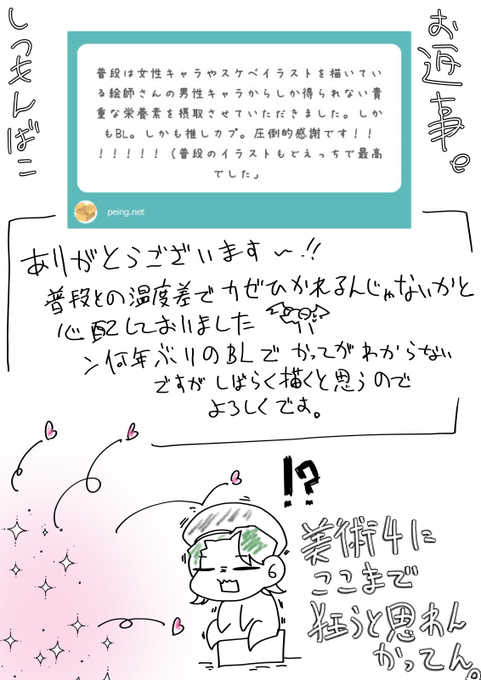 お返事。
しつもんばこ
普段は女性キャラやスケベイラストを描いてい
る絵師さんの男性キャラからしか得られない貴
重な栄養素を摂取させていただきました。しか
もBL。しかも推しカプ。圧倒的感謝です！！
！！！！！（普段のイラストもどえっちで最高
でした」
peing.net
ありがとうございます〜!!
普段との温度差でカゼひかれるんじゃないかと
心配しておりました
何年ぶりのBLで かってがわからない
ですが しばらく描くと思うので
よろしくです。
!?
美術4に
ここまで
狂うと思わん
かってん。